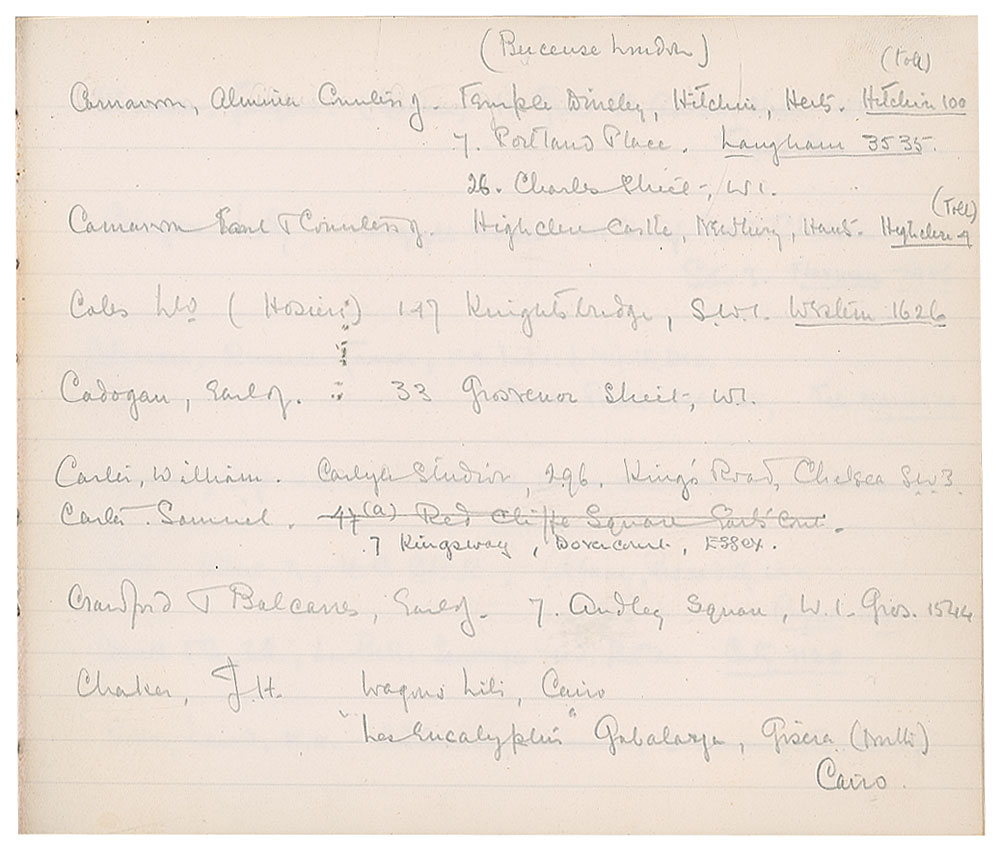 (Buceuse London) (Toll)
Carnarvon, Almina Countess of. Temple Dinsley, Hitchin, Herts. Hitchin 100
7. Portland Place. Langham 3535.
26. Charles Street, W1.
(Toll)
Carnarvon Earl & Countess of. Highclere Castle, Newbury, Hants. Highclere 9
Coles Ltd (Hosiers) 147 Knightsbridge, S.W.1. Western 1626
Cadogan, Earl of. 33 Grosvenor Street, W1.
Carter, William. Carlyle Studios, 296, King's Road, Chelsea S.W.3.
Carter. Samuel. 47(a) Red Cliffe Square Earls Court.
7 Kingsway, Dovercourt, Essex.
Crawford & Balcarres, Earl of. 7. Audley Square, W.1. Gros. 1544
Chaker, J.H. Wagons Lits, Cairo
"Les Eucalyptus" Gabalaya, Gizera
Cairo.